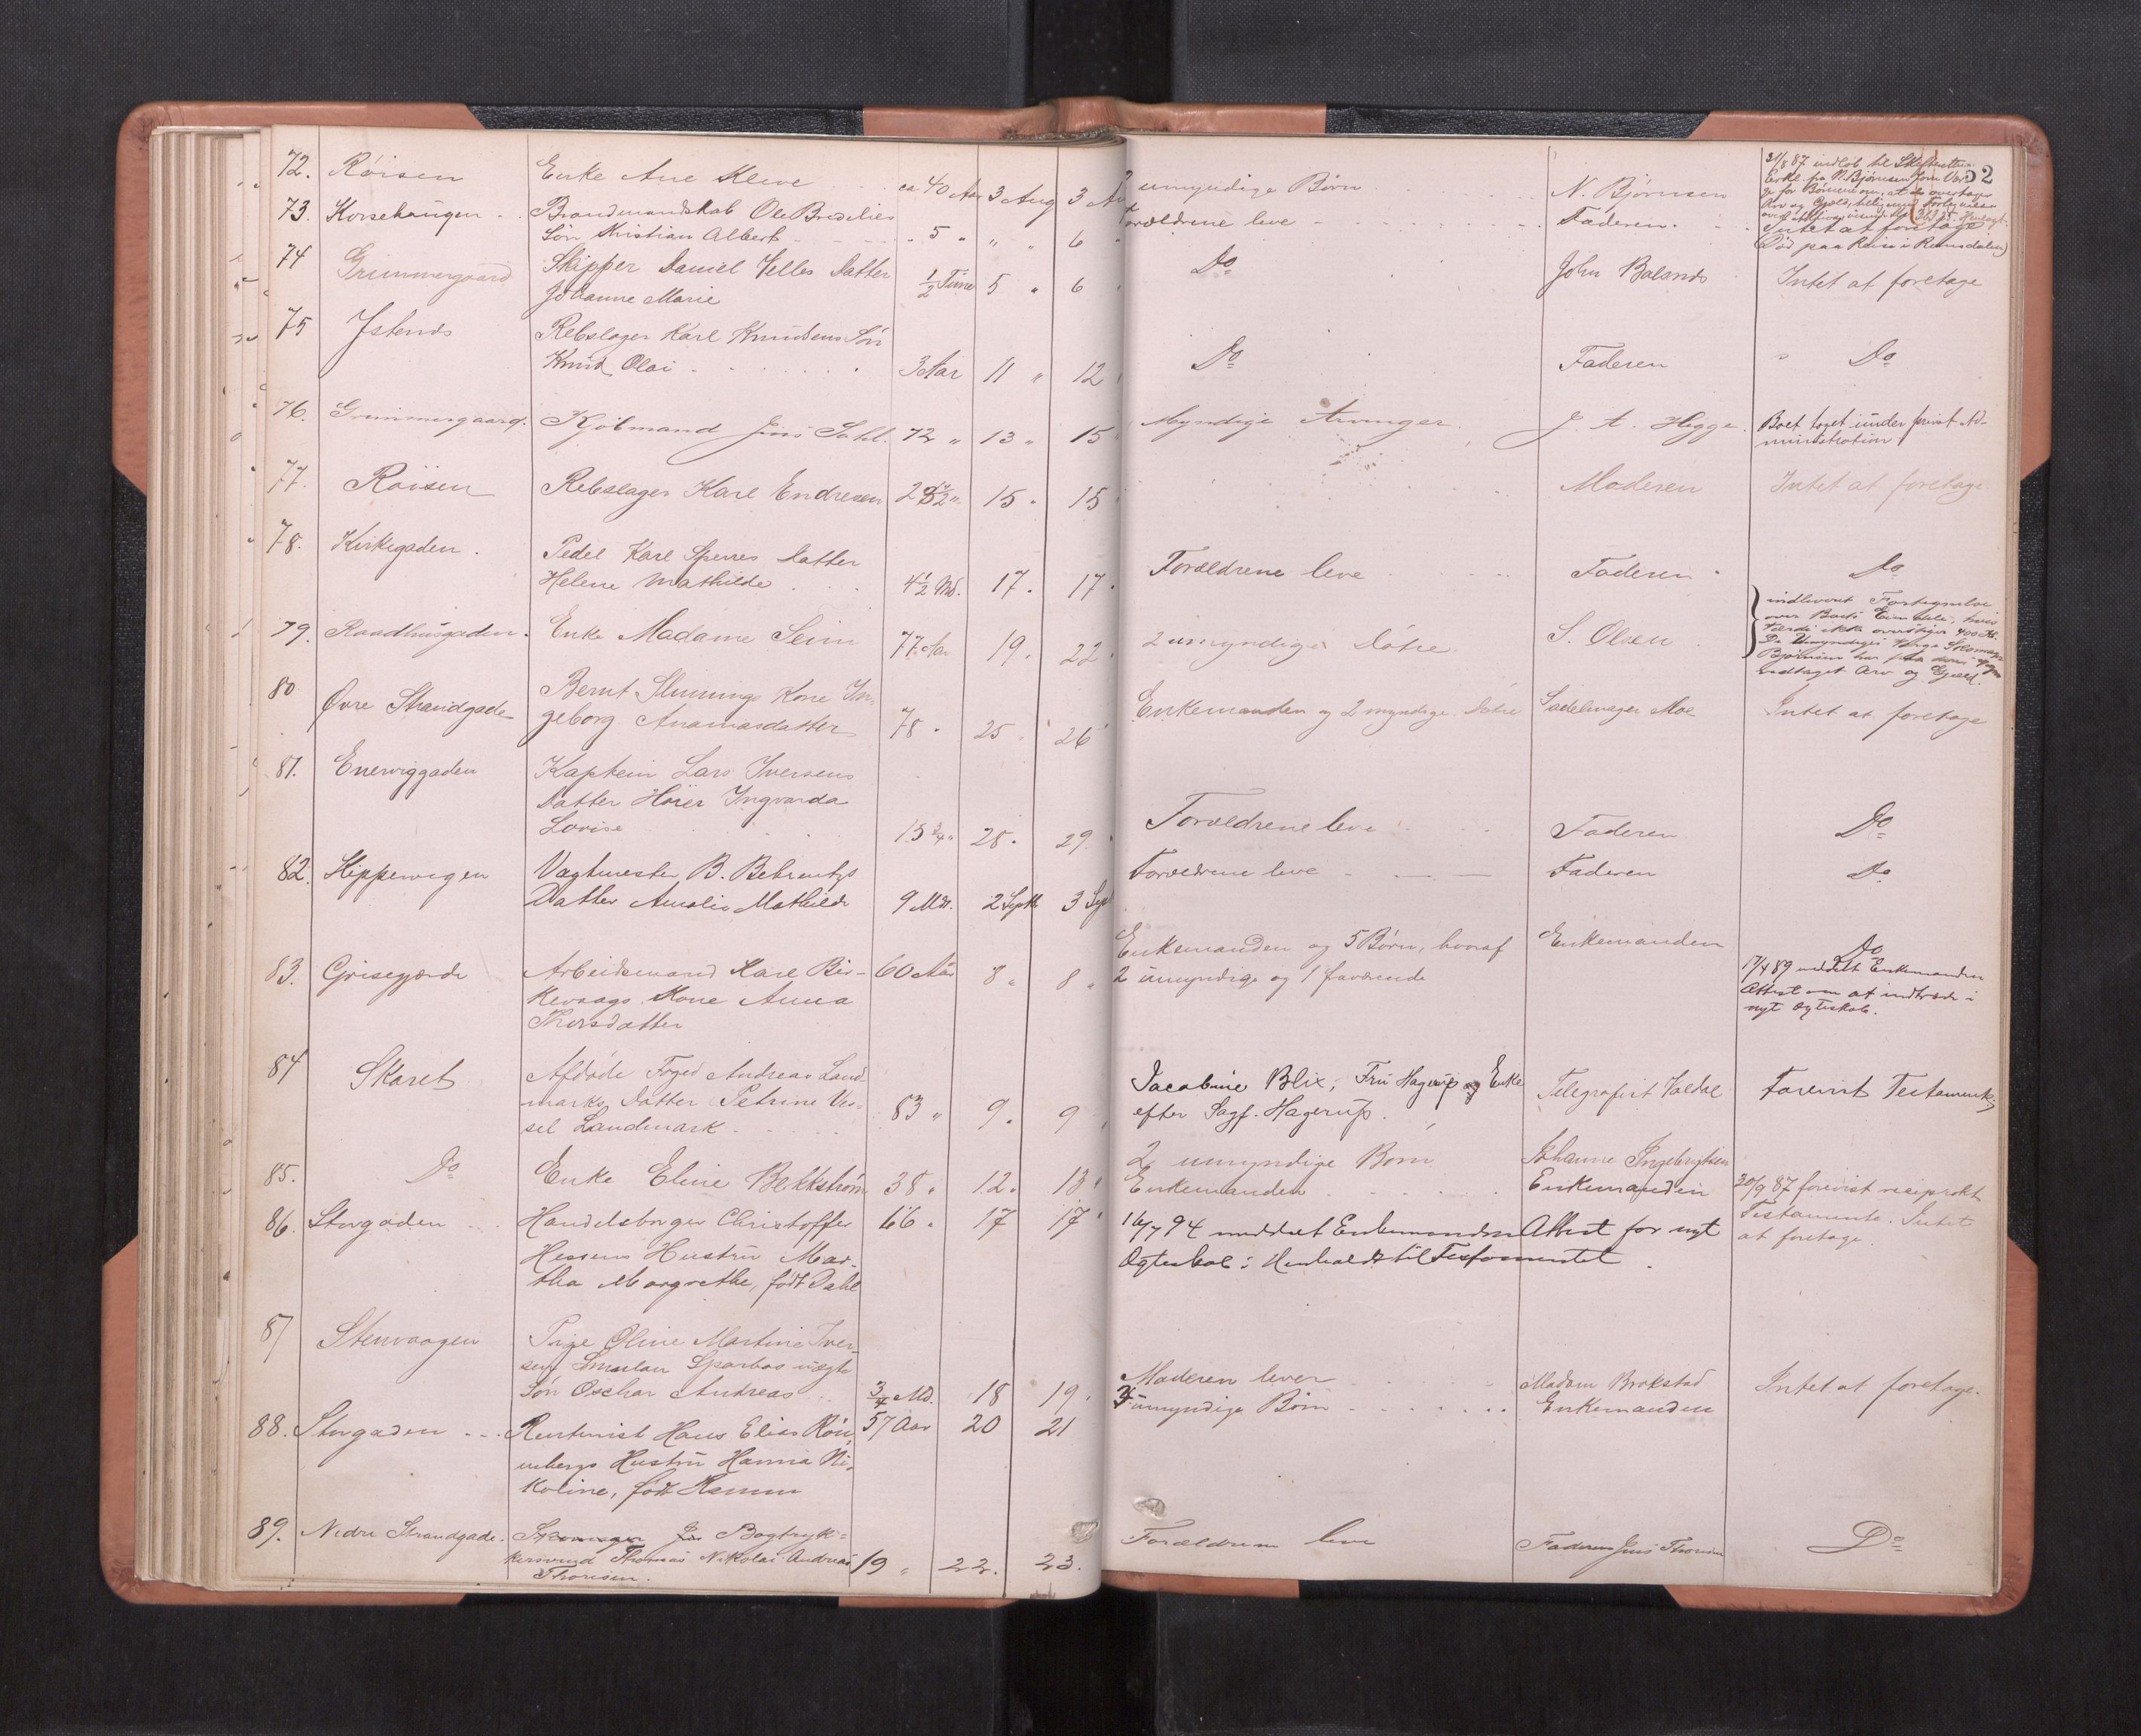 72. Röisen Enke Ane Kleve ca 40 Aar 3 Aug 3
umyndige Börn N. Björnsen
31/8 87 indlöb til Skifteretten
52
Erkl. fra N. Björnsen som Vær-
ge for Börnene om, at de overtager
Arv og Gjæld
73. Korsehaugen Brandmandskab Ole
Sön Kristian Albert 5 " " " 6
Forældrene leve Faderen.
Intet at foretage
(Död paa Reise i Romsdalen)
74 Grimmergaard Skipper Daniel Datter
Johanne Marie 1/2 Time 5 " 6
Do John Intet at foretage
75 Rebslager Karl Knudsens Sön
Knud Olai 3 Aar 11 " 12
Do Faderen Do
76. Grimmergaard. Kjöbmand Jens Dahl 72 " 13 " 15
Myndige Arvinger. J. A. Hegge. Boet taget under privat Ad-
ministration
77. Röisen Rebslager Karl Endresen 15 " 15
Moderen Intet at foretage
78. Kirkegaden. Pedel Karl Datter
Helene Mathilde 4 1/2 Md. 17 " 17 "
Forældrene leve Faderen Do
79. Raadhusgaden. Enke Madame Seim 77 Aar 19. 22.
2 umyndige Döttre S. Olsen
indleveret Fortegnelse
over Boets Eiendele, hvis
Værdi ikke overstiger 400 Kr.
De Umyndiges Værge Skomager
Björnsen har paa deres Vegne
vedtaget Arv og Gjæld.
80 Övre Strandgade Bernt Kone In-
geborg 78 " 25 " 26
Enkemanden og 2 myndige Döttre Sadelmager Moe Intet at foretage
81. Enewiggaden Kaptein Lars Iversens
Datter Ingvarda
Lovise 15 3/4 " 28 " 29
Forældrene leve Faderen Do
82. Kippervigen Vagtmester B. Behrentzs
Datter Amalie Mathilde 9 Mdr. 2 Septb 3 Sept
Forældrene leve Faderen Do
83. Grisegjerde Arbeidsmand Karl Bir- 60 Aar 8 " 8 "
kevaags Kone Anna
Thorsdatter
Enkemanden og 5 Börn, hvoraf Enkemanden Do
2 umyndige og 1 fraværende
17/4 89 meddelt Enkemanden
Attest om at indtræde i
nyt Ægteskab.
84 Skaret Afdöde Foged Andreas Land-
marks Datter Petrine Ves-
sel Landmark 83 " 9. 9
Jacobine Blix, Fru Hagerup og Enke Telegrafist Forevist Testament
efter Sagf. Hagerup.
85. Do Enke Eline Bekkström 38. 12. 13
2 umyndige Börn Johanne Ingebrigtsen
86. Storgaden Handelsborger Christoffer 66. 17 17
Hustru Mar-
tha Margrethe, födt Dahl
Enkemanden Enkemanden 20/9 87 forevist reciprokt
Testamente. Intet
at foretage.
16/7 94 meddelt Enkemanden Attest for nyt
Ægteskab i Henhold til Testamentet.
87 Stenvaagen Pige Oline Martine Iver-
sen
Sön Oschar Andreas 3/4 Md. 18 19.
Moderen lever Madam Brokstad Intet at foretage.
88. Storgaden Hans Elias Rön- 57 Aar 20 21
nebergs Hustru Hanna Ni-
koline, födt
umyndige Börn Enkemanden
89. Nedre Strandgade. Skomager Bogtryk-
kersvend Thomas Nikolai Andreas 19 " 22. 23.
Thoresen.
Forældrene leve Faderen Jens Thoresen Do